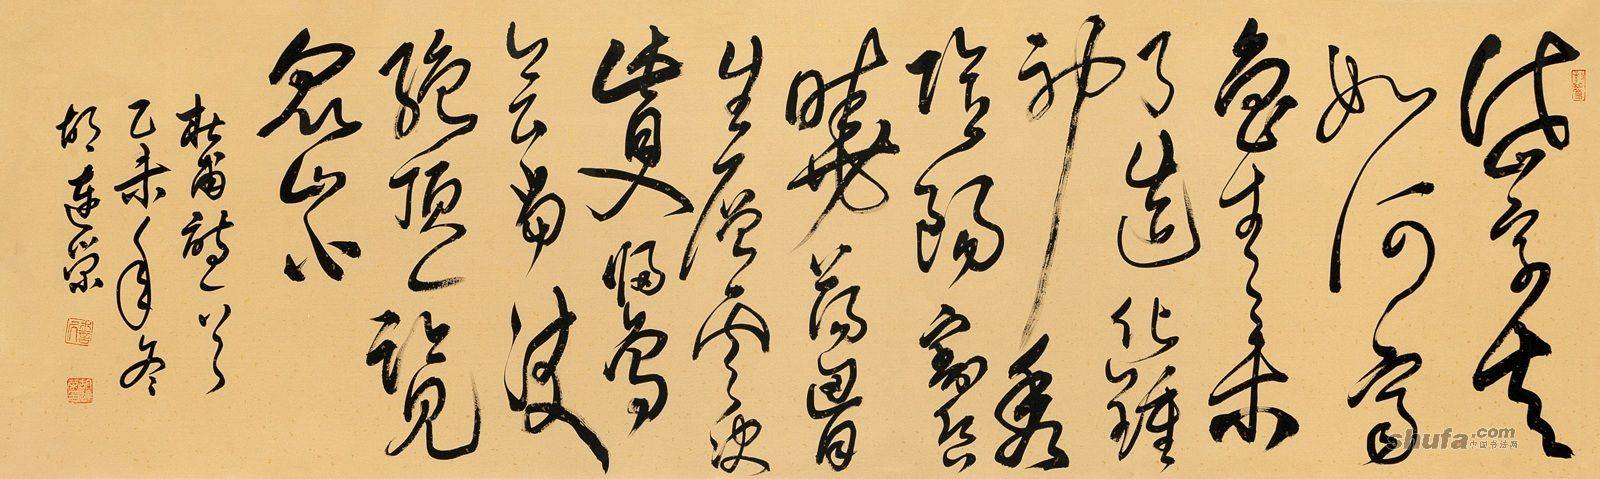 岱宗夫
如何齊
魯青未
了造化鍾
神秀
陰陽割昏
曉蕩胸
生層雲決
眥入歸鳥
會當凌
絕頂一覽
眾山小
杜甫詩一首
乙未年冬
胡連榮
shufa.com
中国书法网